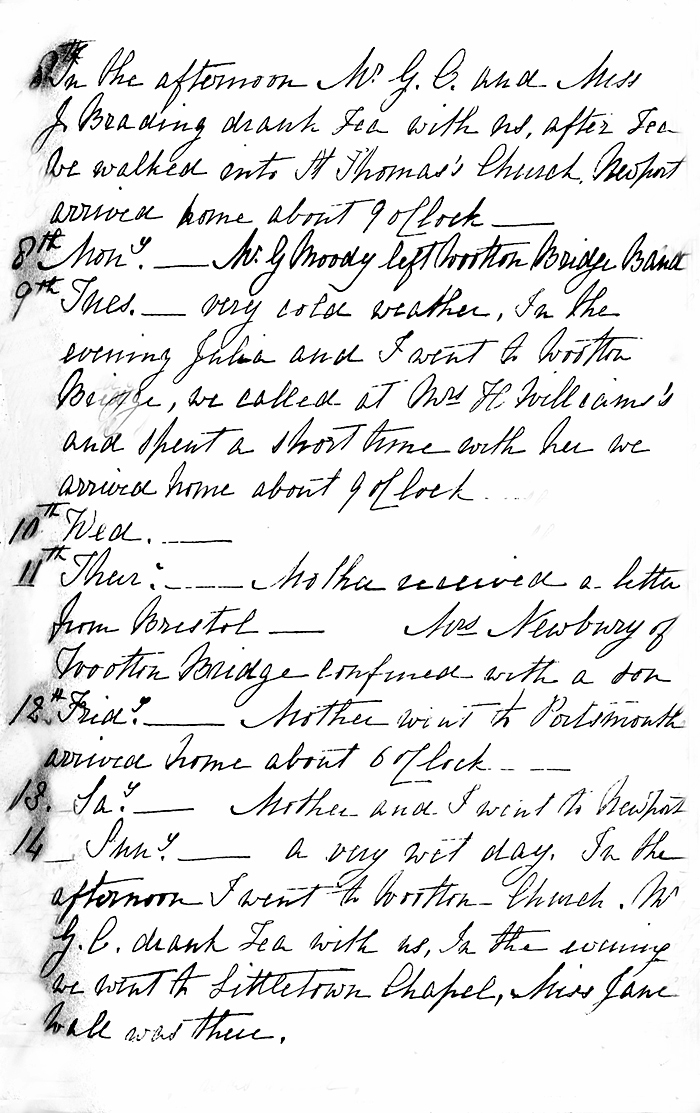 8th In the afternoon Mr G. C. and Miss
J Brading drank Tea with us, after Tea
we walked into St Thomas's Church, Newport
arrived home about 9 oClock —
8th Mony. — Mr. G Moody left Wootton Bridge Band
9th Tues. — very cold weather, In the
evening Julia and I went to Wootton
Bridge, we called at Mrs H Williams's
and spent a short time with her we
arrived home about 9 oClock
10th Wed. —
11th Thur. — Mother received a letter
from Bristol — Mrs Newbury of
Wootton Bridge confined with a son
12th Fridy. — Mother went to Portsmouth
arrived home about 6 oClock — —
13. Say. — Mother and I went to Newport
14 — Suny. — a very wet day. In the
afternoon I went to Wootton - Church. Mr
G. C. drank Tea with us, In the evening
we went to Littletown Chapel, Miss Jane
was there.